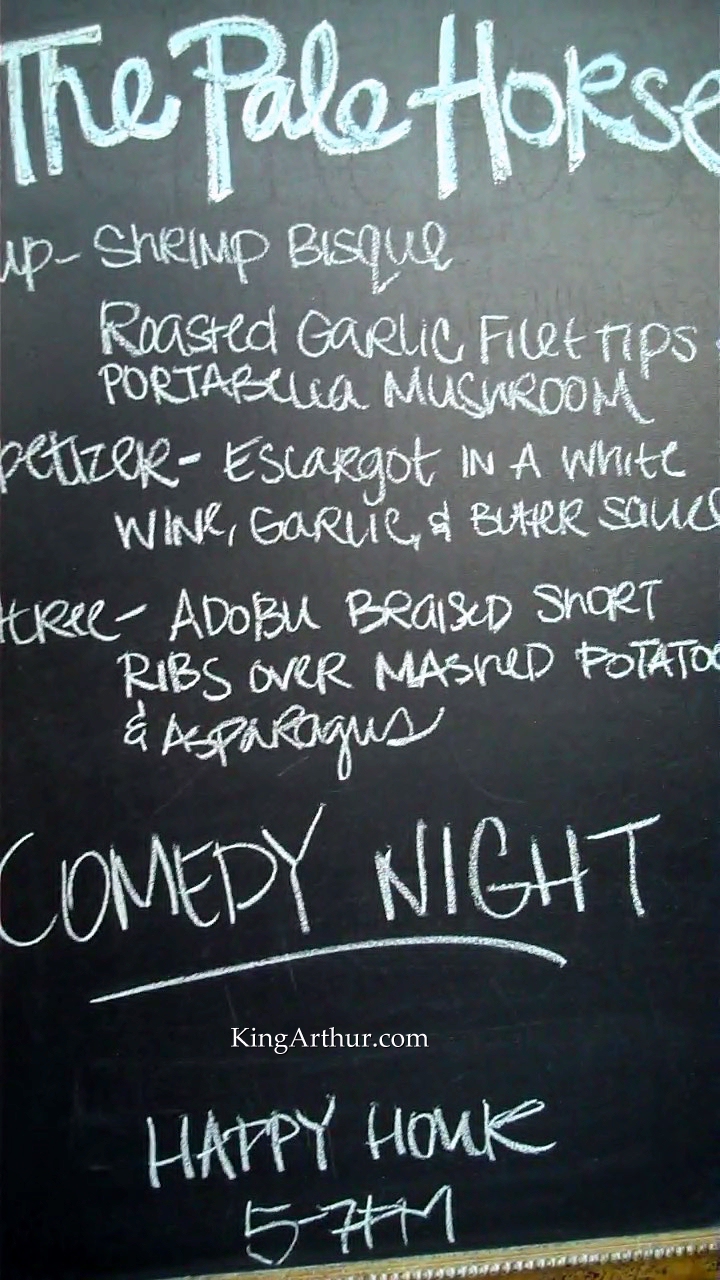 The Pale Horse
up- Shrimp Bisque
Roasted Garlic Filet tips
Portabella Mushroom
petizer- Escargot in a white
wine, Garlic, & Butter sauce
tree- Adobu Braised Short
Ribs over Mashed Potatoe
& Asparagus
COMEDY NIGHT
KingArthur.com
HAPPY HOUR
5-7PM